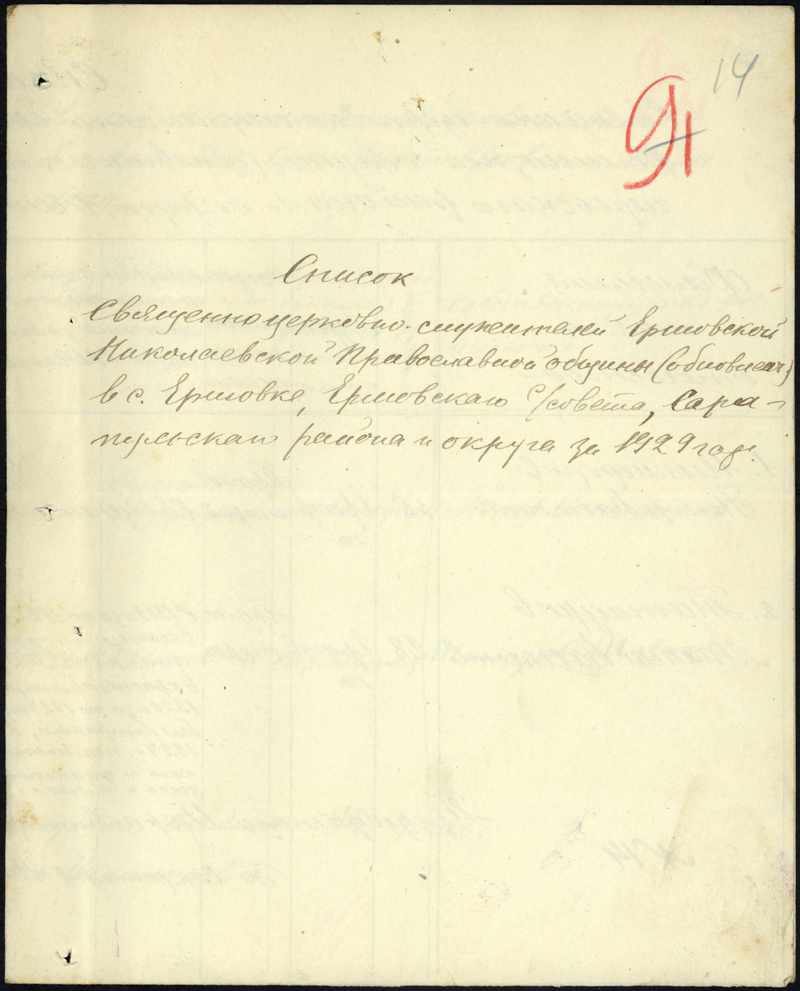 14
91
Список
Священно церковно-служителей Ершовской
Николаевской Православной общины (обновленч)
в с. Ершовке, Ершовскаго с/совета, Сара-
пульскаго района и округа за 1929 год.